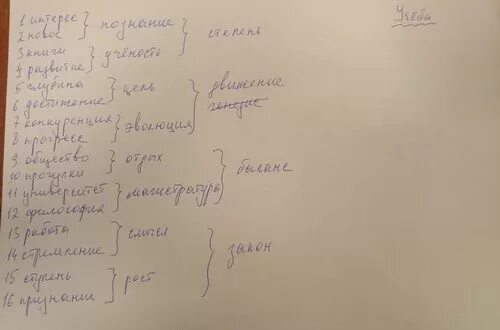 Учёба
1 интерес
2 новое
познание
3 книги
4 развитие
учёность
степень
5 глубины
6 достижение
цель
7 конкуренция
8 прогресс
эволюция
движение
генезис
9 общество
10 прогулки
отдых
11 университет
12 философия
магистратура
баланс
13 работы
14 стремление
смысл
15 ступень
16 признании
рост
закон